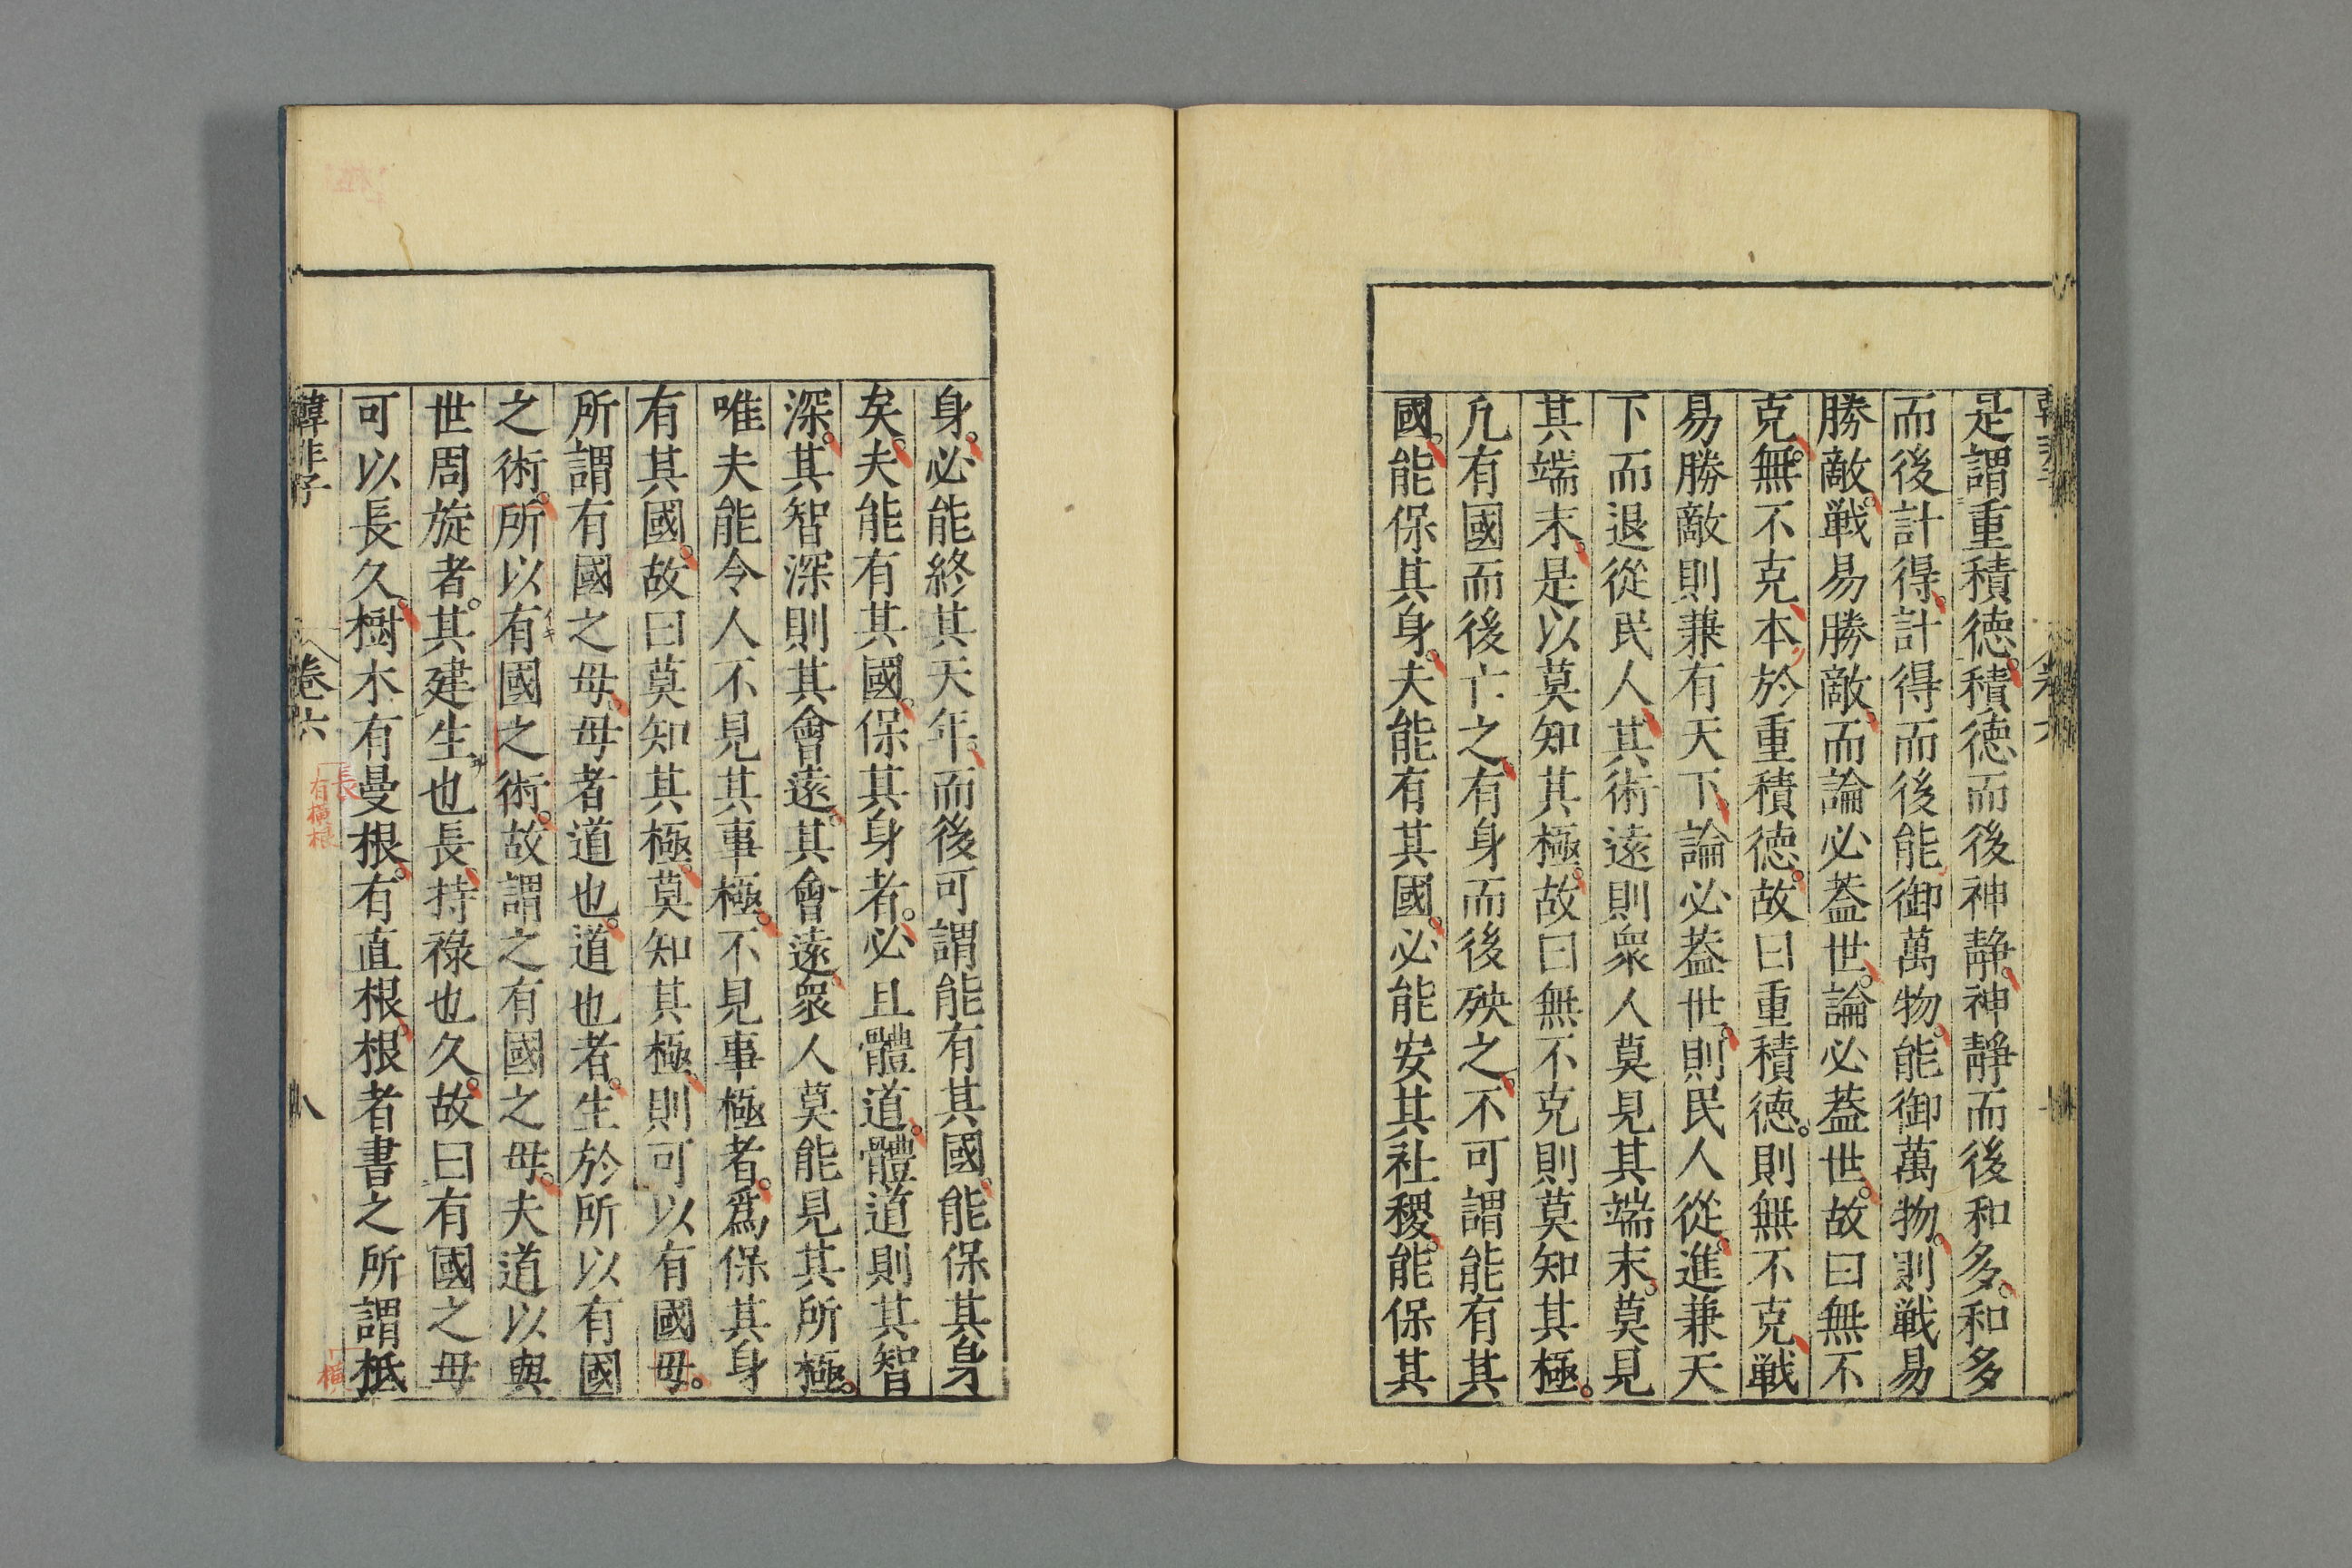 是謂重積德。積德而後神靜。神靜而後和多。和多
而後計得。計得而後能御萬物。能御萬物。則戰易
勝敵。戰易勝敵。而論必蓋世。論必蓋世。故曰無不
克。無不克。本於重積德。故曰重積德。則無不克。戰
易勝敵則兼有天下。論必蓋世。則民人從。進兼天
下而退從民人。其術遠則衆人莫見其端末。莫見
其端末。是以莫知其極。故曰無不克則莫知其極。
凡有國而後亡之。有身而後殃之。不可謂能有其
國。能保其身。夫能有其國。必能安其社稷。能保其
身。必能終其天年。而後可謂能有其國。能保其身
矣。夫能有其國。保其身者。必且體道。體道則其智
深。其智深則其會遠。其會遠。衆人莫能見其所極。
唯夫能令人不見其事極。不見事極者。爲保其身
有其國。故曰莫知其極。莫知其極。則可以有國母。
所謂有國之母。母者道也。道也者。生於所以有國
之術。所以有國之術。故謂之有國之母。夫道以與
世周旋者。其建生也長。持祿也久。故曰有國之母
可以長久。樹木有曼根。有直根。根者書之所謂柢
長
有橫根
橫
韓非子 卷六 八